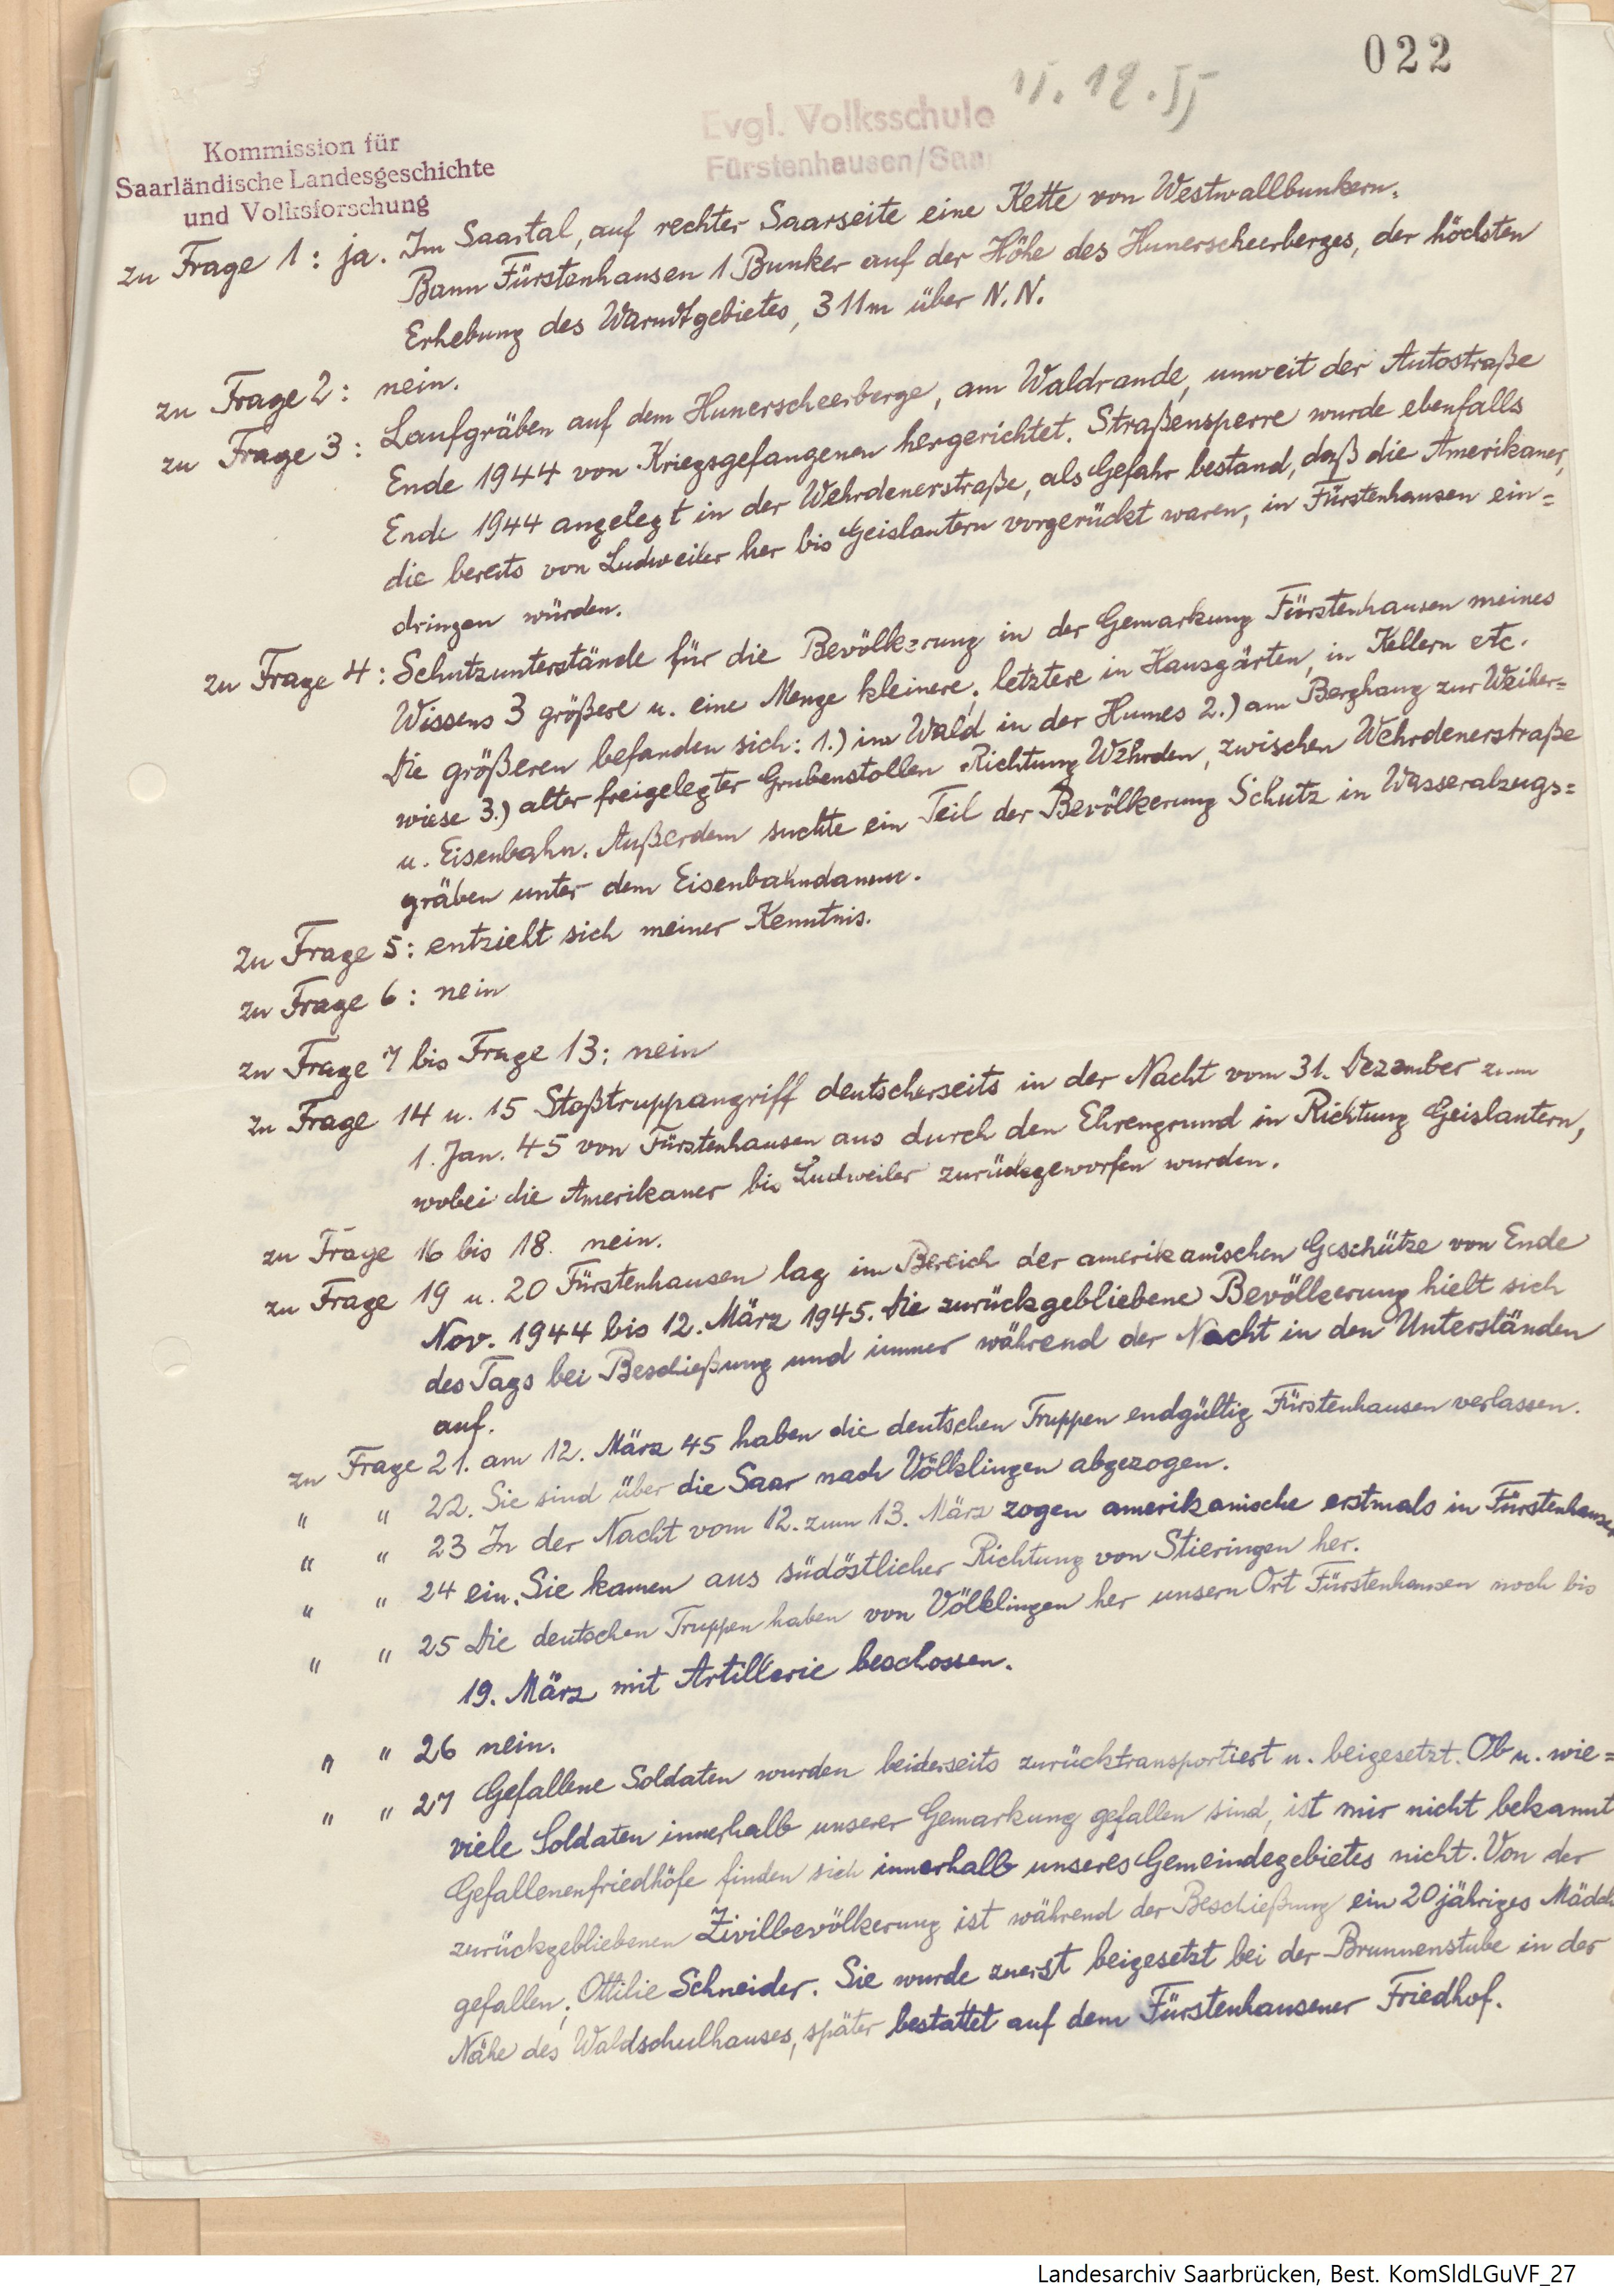 022
15.12.55
Evgl. Volksschule
Fürstenhausen/Saar
Kommission für
Saarländische Landesgeschichte
und Volksforschung
zu Frage 1: ja. Im Saartal, auf rechter Saarseite eine Kette von Westwallbunkern.
Bann Fürstenhausen 1 Bunker auf der Höhe des Hunerscheerberges, der höchsten
Erhebung des Warndtgebietes, 311m über N.N.
zu Frage 2: nein.
zu Frage 3: Laufgräben auf dem Hunerscheerberge, am Waldrande, unweit der Autostraße
Ende 1944 von Kriegsgefangenen hergerichtet. Straßensperre wurde ebenfalls
Ende 1944 angelegt in der Wehrdenerstraße, als Gefahr bestand, daß die Amerikaner,
die bereits von Ludweiler her bis Geislautern vorgerückt waren, in Fürstenhausen ein=
dringen würden.
zu Frage 4: Schutzunterstände für die Bevölkerung in der Gemarkung Fürstenhausen meines
Wissens 3 größere u. eine Menge kleinere, letztere in Hausgärten, in Kellern etc.
Die größeren befanden sich: 1.) im Wald in der Humes 2.) am Berghang zur Weiher=
wiese 3.) alter freigelegter Grubenstollen Richtung Wehrden, zwischen Wehrdenerstraße
u. Eisenbahn. Außerdem suchte ein Teil der Bevölkerung Schutz in Wasserabzugs=
gräben unter dem Eisenbahndamm.
zu Frage 5: entzieht sich meiner Kenntnis.
zu Frage 6: nein
zu Frage 7 bis Frage 13: nein
zu Frage 14 u. 15 Stoßtruppangriff deutscherseits in der Nacht vom 31. Dezember zum
1. Jan. 45 von Fürstenhausen aus durch den Ehrengrund in Richtung Geislautern,
wobei die Amerikaner bis Ludweiler zurückgeworfen wurden.
zu Frage 16 bis 18. nein.
zu Frage 19 u. 20 Fürstenhausen lag im Bereich der amerikanischen Geschütze von Ende
Nov. 1944 bis 12. März 1945. Die zurückgebliebene Bevölkerung hielt sich
des Tags bei Beschießung und immer während der Nacht in den Unterständen
auf.
zu Frage 21. am 12. März 45 haben die deutschen Truppen endgültig Fürstenhausen verlassen.
" " 22. Sie sind über die Saar nach Völklingen abgezogen.
" " 23 In der Nacht vom 12. zum 13. März zogen amerikanische erstmals in Fürstenhausen
" " 24 ein. Sie kamen aus südöstlicher Richtung von Stieringen her.
" " 25 Die deutschen Truppen haben von Völklingen her unsern Ort Fürstenhausen noch bis
19. März mit Artillerie beschossen.
" " 26 nein.
" " 27 Gefallene Soldaten wurden beiderseits zurücktransportiert u. beigesetzt. Ob u. wie=
viele Soldaten innerhalb unserer Gemarkung gefallen sind, ist mir nicht bekannt
Gefallenenfriedhöfe finden sich innerhalb unseres Gemeindegebietes nicht. Von der
zurückgebliebenen Zivilbevölkerung ist während der Beschießung ein 20jähriges Mädch
gefallen, Ottilie Schneider. Sie wurde zuerst beigesetzt bei der Brunnenstube in der
Nähe des Waldschulhauses, später bestattet auf dem Fürstenhausener Friedhof.
Landesarchiv Saarbrücken, Best. KomSldLGuVF_27